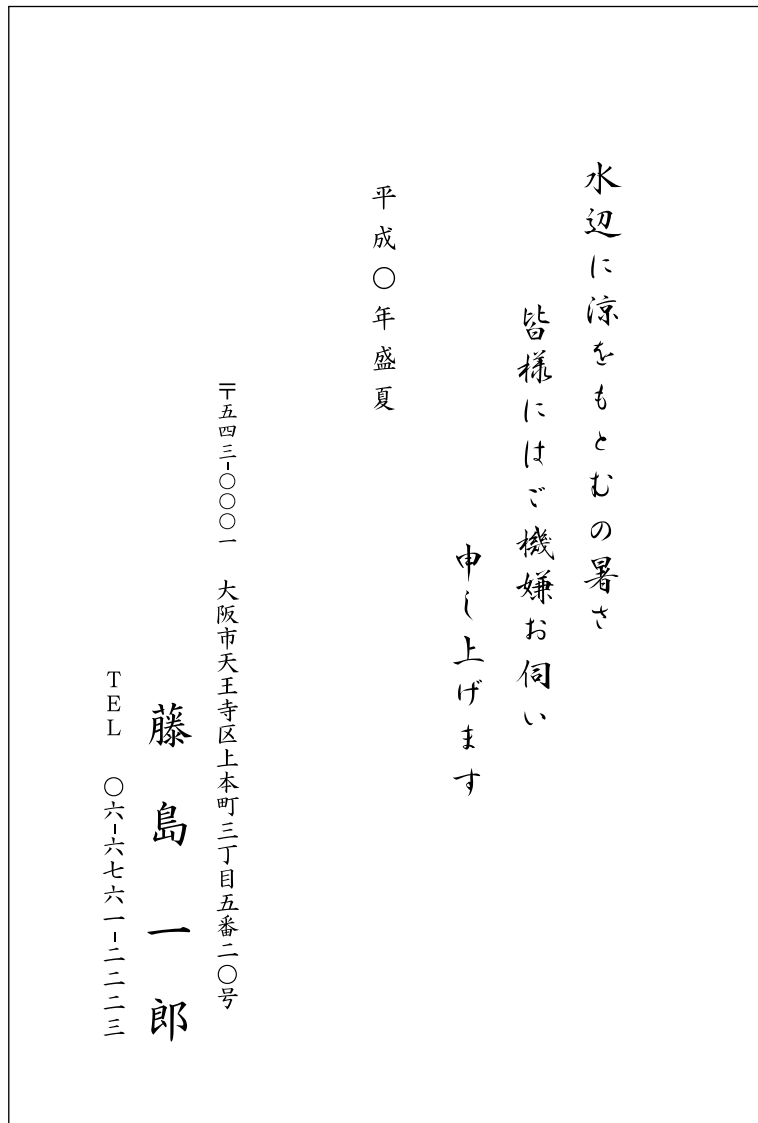 水辺に涼をもとむの暑さ
皆様にはご機嫌お伺い
申し上げます
平成〇年盛夏
〒五四三-〇〇〇一 大阪市天王寺区上本町三丁目五番二〇号
藤島一郎
TEL 〇六-六七六一-二二二三